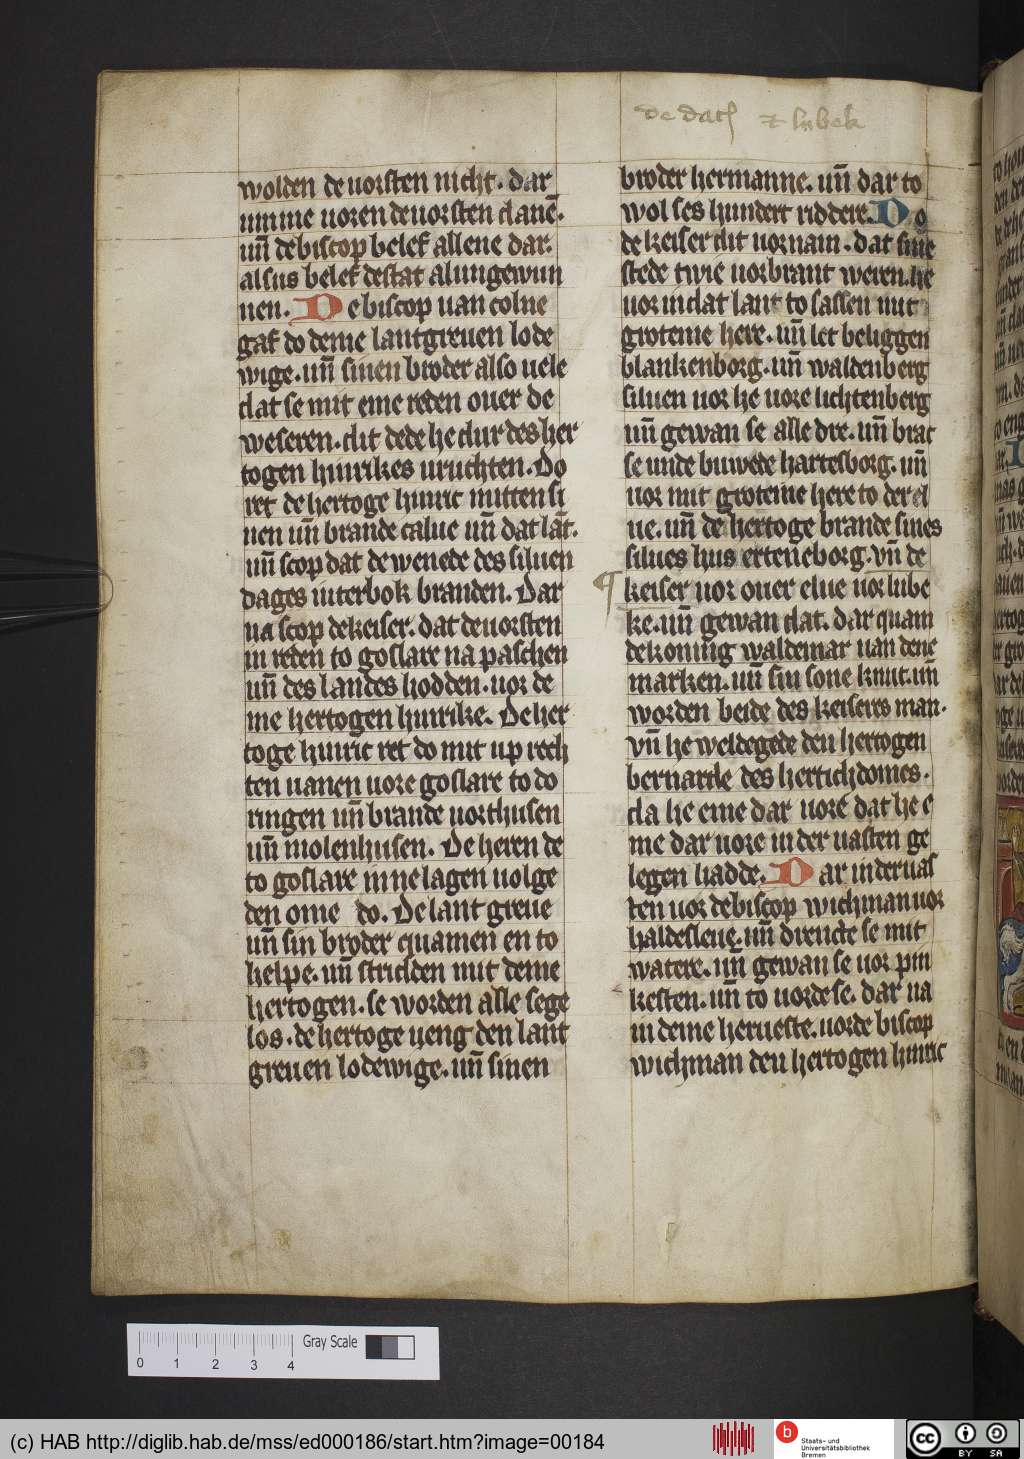 de dach to lubek
wolden de uorsten nicht. dar
umme uoren de uorsten danē.
uñ de biscop belef allene dar.
alsus belef de stat al ungewun
nen. De biscop uan colne
gaf do deme lantgreuen lode
wige. uñ sinen broder also uele
dat se mit eme reden ouer de
weseren. dit dede he dur des her
togen hinrikes uruchten. Do
ret de hertoge hinric mitten si
nen uñ brande calue uñ dat lāt.
uñ scop dat de wenede des siluen
dages iuterbok branden. Dar
na scop de keiser. dat de uorsten
in reden to goslare na paschen
uñ des landes hodden. uor de
me hertogen hinrike. De her
toge hinric ret do mit up rech
ten uanen uore goslare to do
ringen uñ brande northusen
uñ molenhusen. De heren de
to goslare inne lagen uolge
den ome do. De lant greue
uñ sin broder quamen en to
helpe. uñ stridden mit deme
hertogen. se worden alle sege
los. de hertoge ueng den lant
greuen lodewige. uñ sinen
broder hermanne. uñ dar to
wol ses hundert riddere. Do
de keiser dit uornam. dat sine
stede twie uorbrant weren. he
uor in dat lant to sassen mit
groteme here. uñ let beliggen
blankenborg. uñ waldenberg
siluen uor he uore lichtenberg
uñ gewan se alle dre. uñ brac
se unde buwede hartesborg. uñ
uor mit groteme here to der el
ue. uñ de hertoge brande sines
silues hus erteneborg. Vñ de
¶ keiser uor ouer elue uor lube
ke. uñ gewan dat. dar quam
de koning waldemar uan dene
marken. uñ sin sone knut. uñ
worden beide des keiseres man.
Vñ he weldegede den hertogen
bernarde des hertichdomes.
da he eme dar uore dat he e
me dar uore in der uasten ge
legen hadde. Dar in der uas
ten uor de biscop wichman uor
haldesleue. uñ drencte se mit
watere. uñ gewan se uor pin
kesten. uñ to uorde se. dar na
in deme herueste. uorde biscop
wichman den hertogen hinric
0 1 2 3 4
Gray Scale
(c) HAB http://diglib.hab.de/mss/ed000186/start.htm?image=00184
b
Staats- und
Universitätsbibliothek
Bremen
cc
BY SA